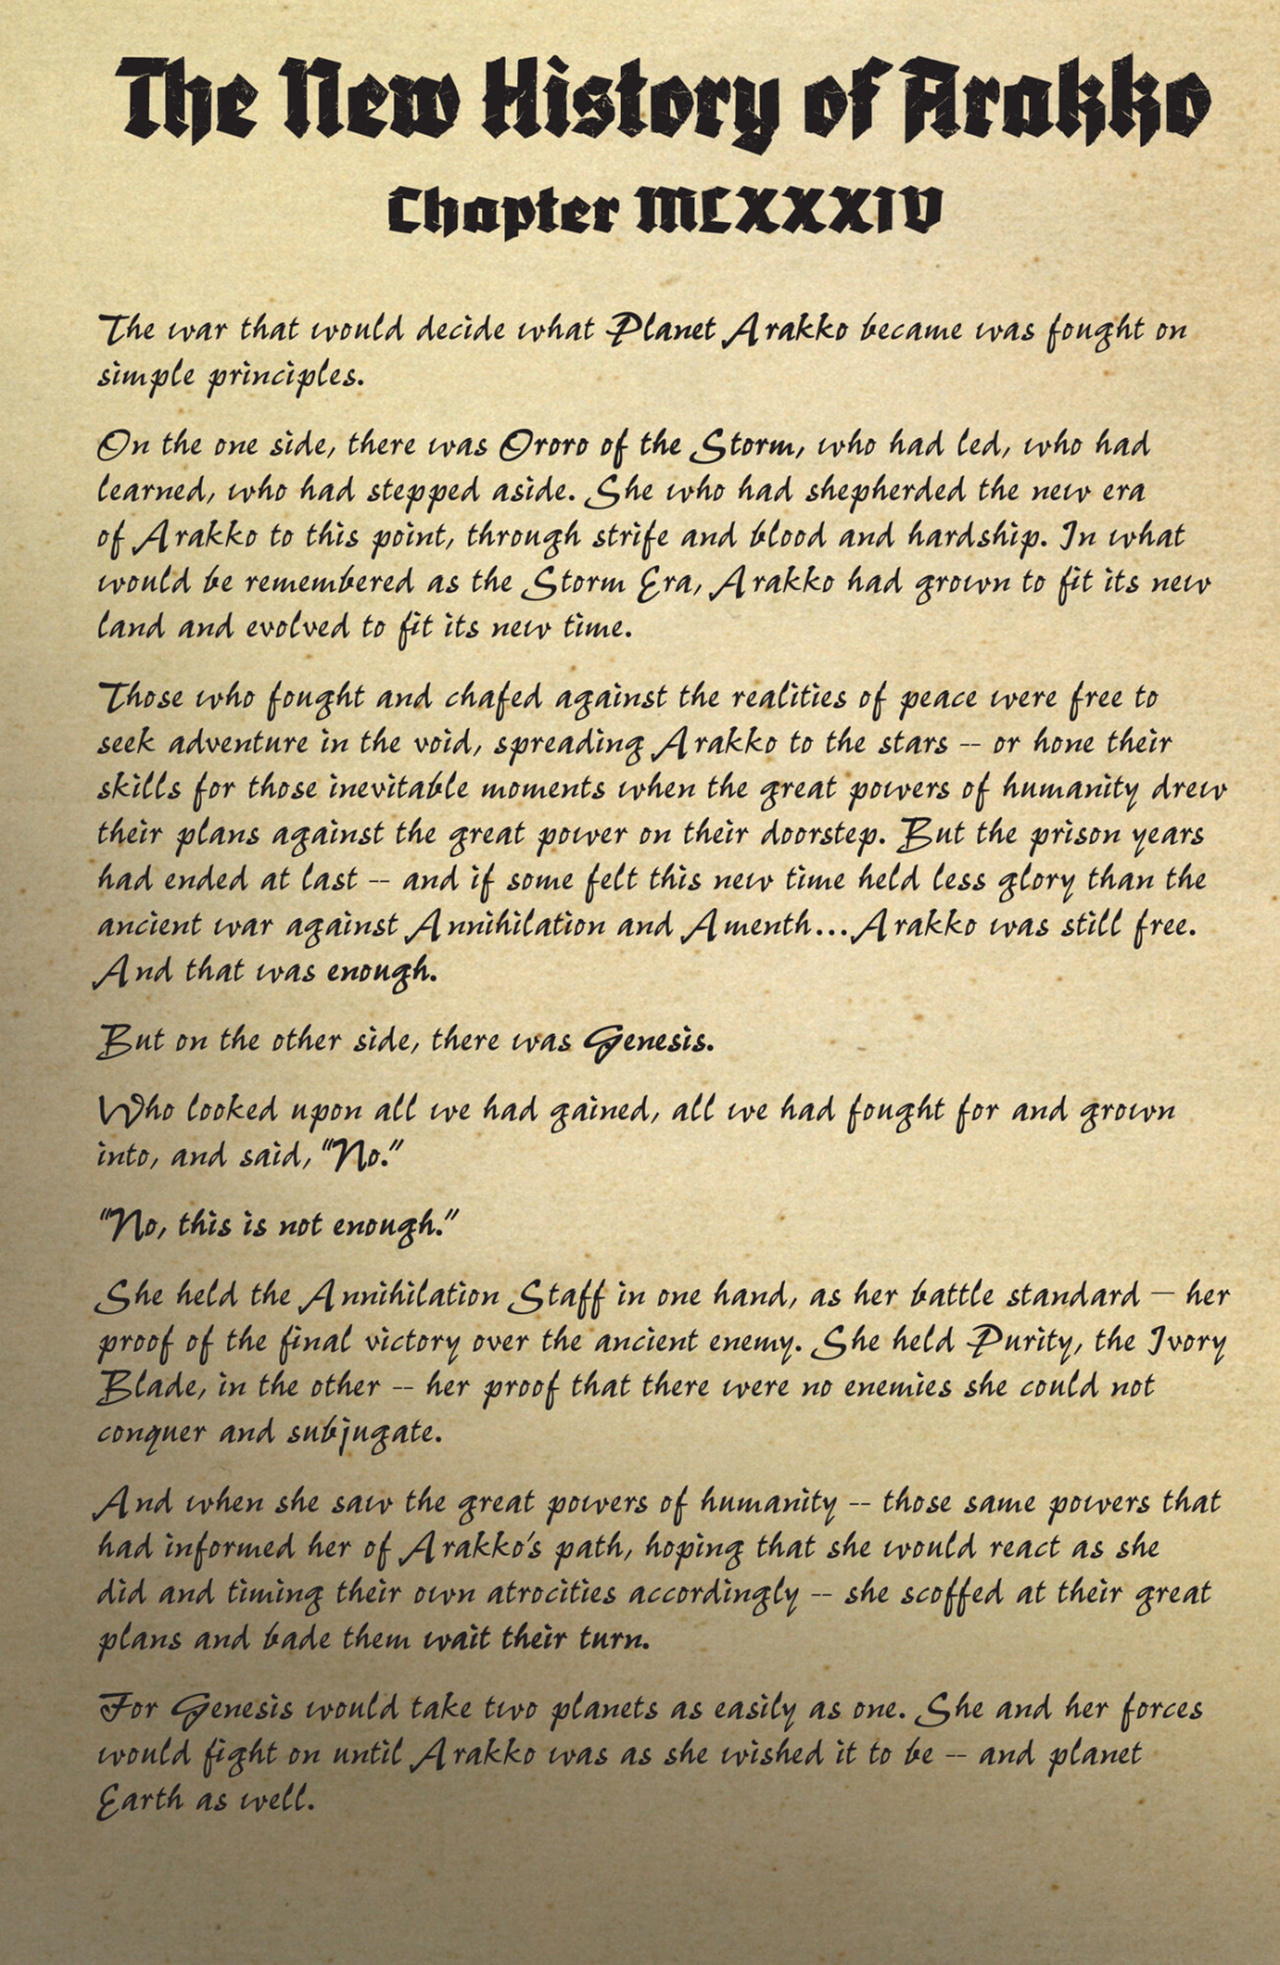 The New History of Arakko
Chapter MCXXXIV
The war that would decide what Planet Arakko became was fought on
simple principles.
On the one side, there was Ororo of the Storm, who had led, who had
learned, who had stepped aside. She who had shepherded the new era
of Arakko to this point, through strife and blood and hardship. In what
would be remembered as the Storm Era, Arakko had grown to fit its new
land and evolved to fit its new time.
Those who fought and chafed against the realities of peace were free to
seek adventure in the void, spreading Arakko to the stars -- or hone their
skills for those inevitable moments when the great powers of humanity drew
their plans against the great power on their doorstep. But the prison years
had ended at last -- and if some felt this new time held less glory than the
ancient war against Annihilation and Amenth...Arakko was still free.
And that was enough.
But on the other side, there was Genesis.
Who looked upon all we had gained, all we had fought for and grown
into, and said, “No.”
“No, this is not enough.”
She held the Annihilation Staff in one hand, as her battle standard — her
proof of the final victory over the ancient enemy. She held Purity, the Ivory
Blade, in the other -- her proof that there were no enemies she could not
conquer and subjugate.
And when she saw the great powers of humanity -- those same powers that
had informed her of Arakko’s path, hoping that she would react as she
did and timing their own atrocities accordingly -- she scoffed at their great
plans and bade them wait their turn.
For Genesis would take two planets as easily as one. She and her forces
would fight on until Arakko was as she wished it to be -- and planet
Earth as well.